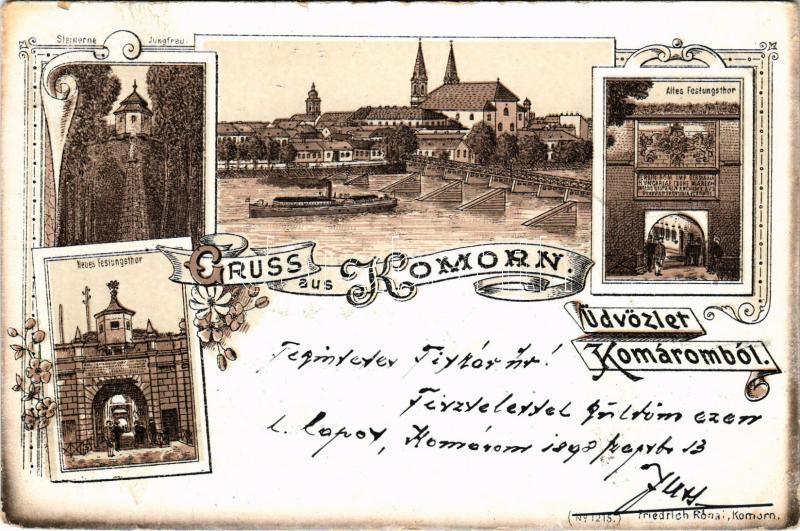 Steinerne Jungfrau.
Altes Festungsthor
Neues Festungsthor
GRUSS aus KOMORN.
Üdvözlet
Komáromból.
Tekintetes Titkár úr!
Tisztelettel küldöm ezen
l. lapot, Komárom 1898 13
(No 1215.) Friedrich Rónai, Komorn.